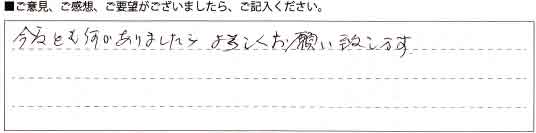 ■ご意見、ご感想、ご要望がございましたら、ご記入ください。
今后とも何かありましたら よろしくお願い致します